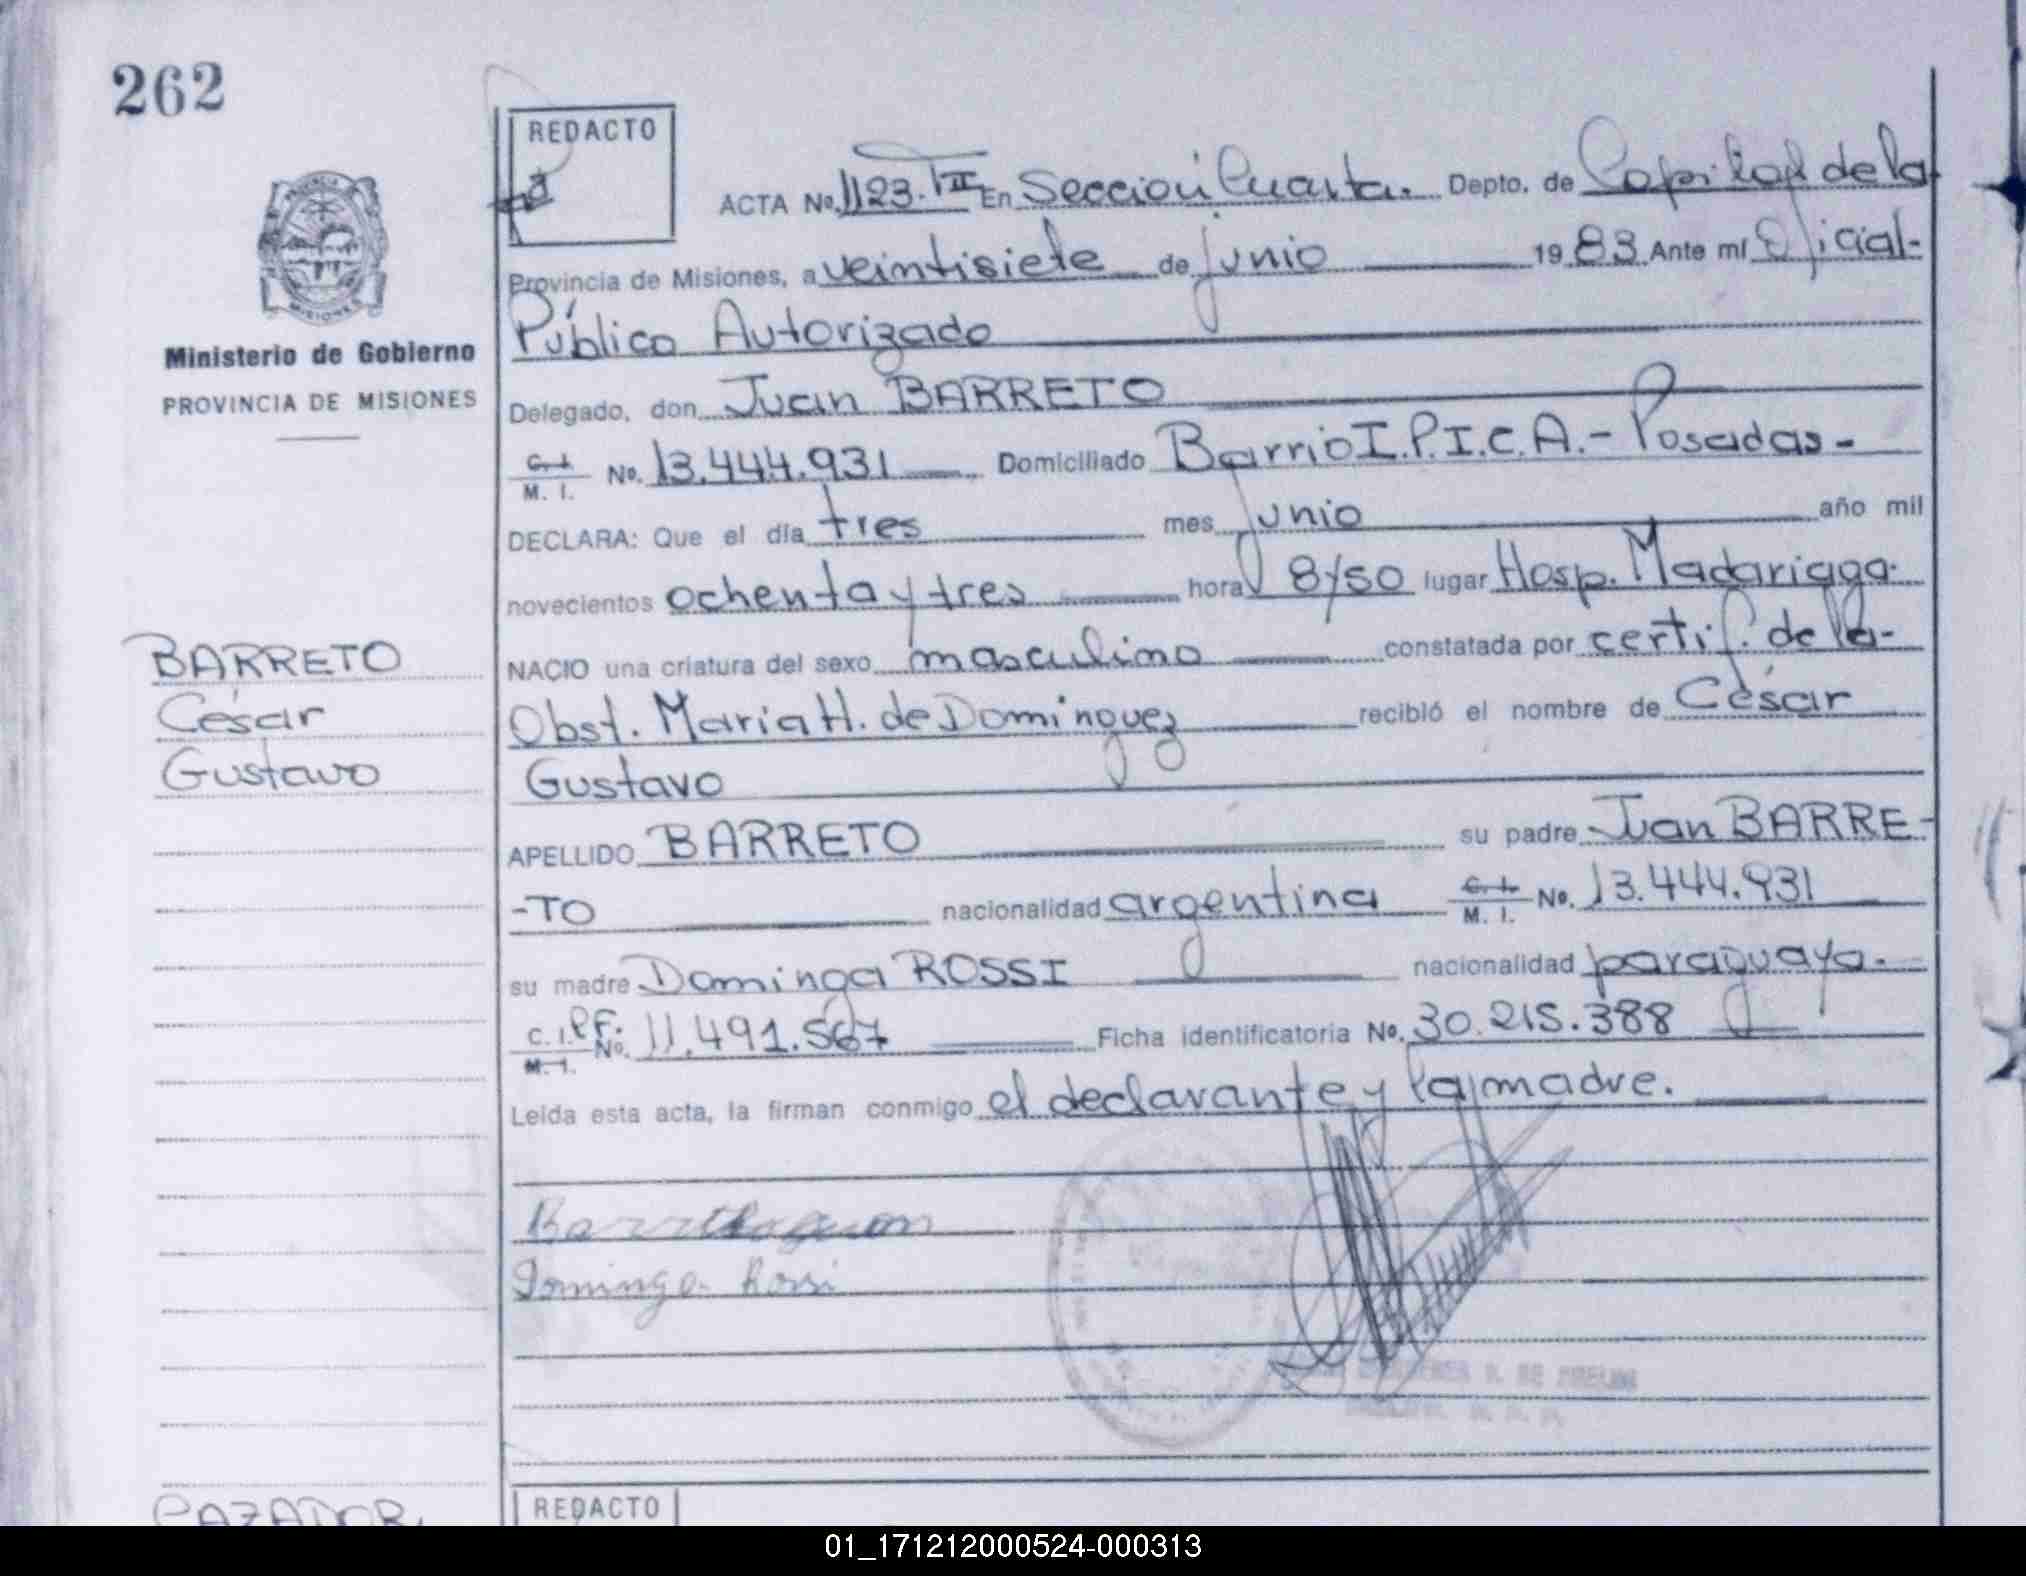 262
REDACTO
ACTA No. 1123. TII En Sección Cuarta. Depto. de Capital de la
Provincia de Misiones, a veintisiete de junio 1983 Ante mí Oficial-
Público Autorizado
Ministerio de Gobierno
PROVINCIA DE MISIONES
Delegado, don Juan BARRETO
C. I. / M. I. No. 13.444.931 Domiciliado Barrio I.P.I.C.A.- Posadas-
DECLARA: Que el día tres mes junio año mil
novecientos ochenta y tres hora 8/50 lugar Hosp. Madariaga
BARRETO
César
Gustavo
NACIO una criatura del sexo masculino constatada por certif. de la-
Obst. Maria H. de Dominguez recibió el nombre de César
Gustavo
APELLIDO BARRETO su padre Juan BARRE-
-TO nacionalidad argentina C. I. / M. I. No. 13.444.931
su madre Dominga ROSSI nacionalidad paraguaya.
C. I. P.F. / M. I. No. 11.491.567 Ficha identificatoria No. 30.215.388
Leída esta acta, la firman conmigo el declarante y la madre.
Dominga Rossi
CAZADOR
REDACTO
01_171212000524-000313